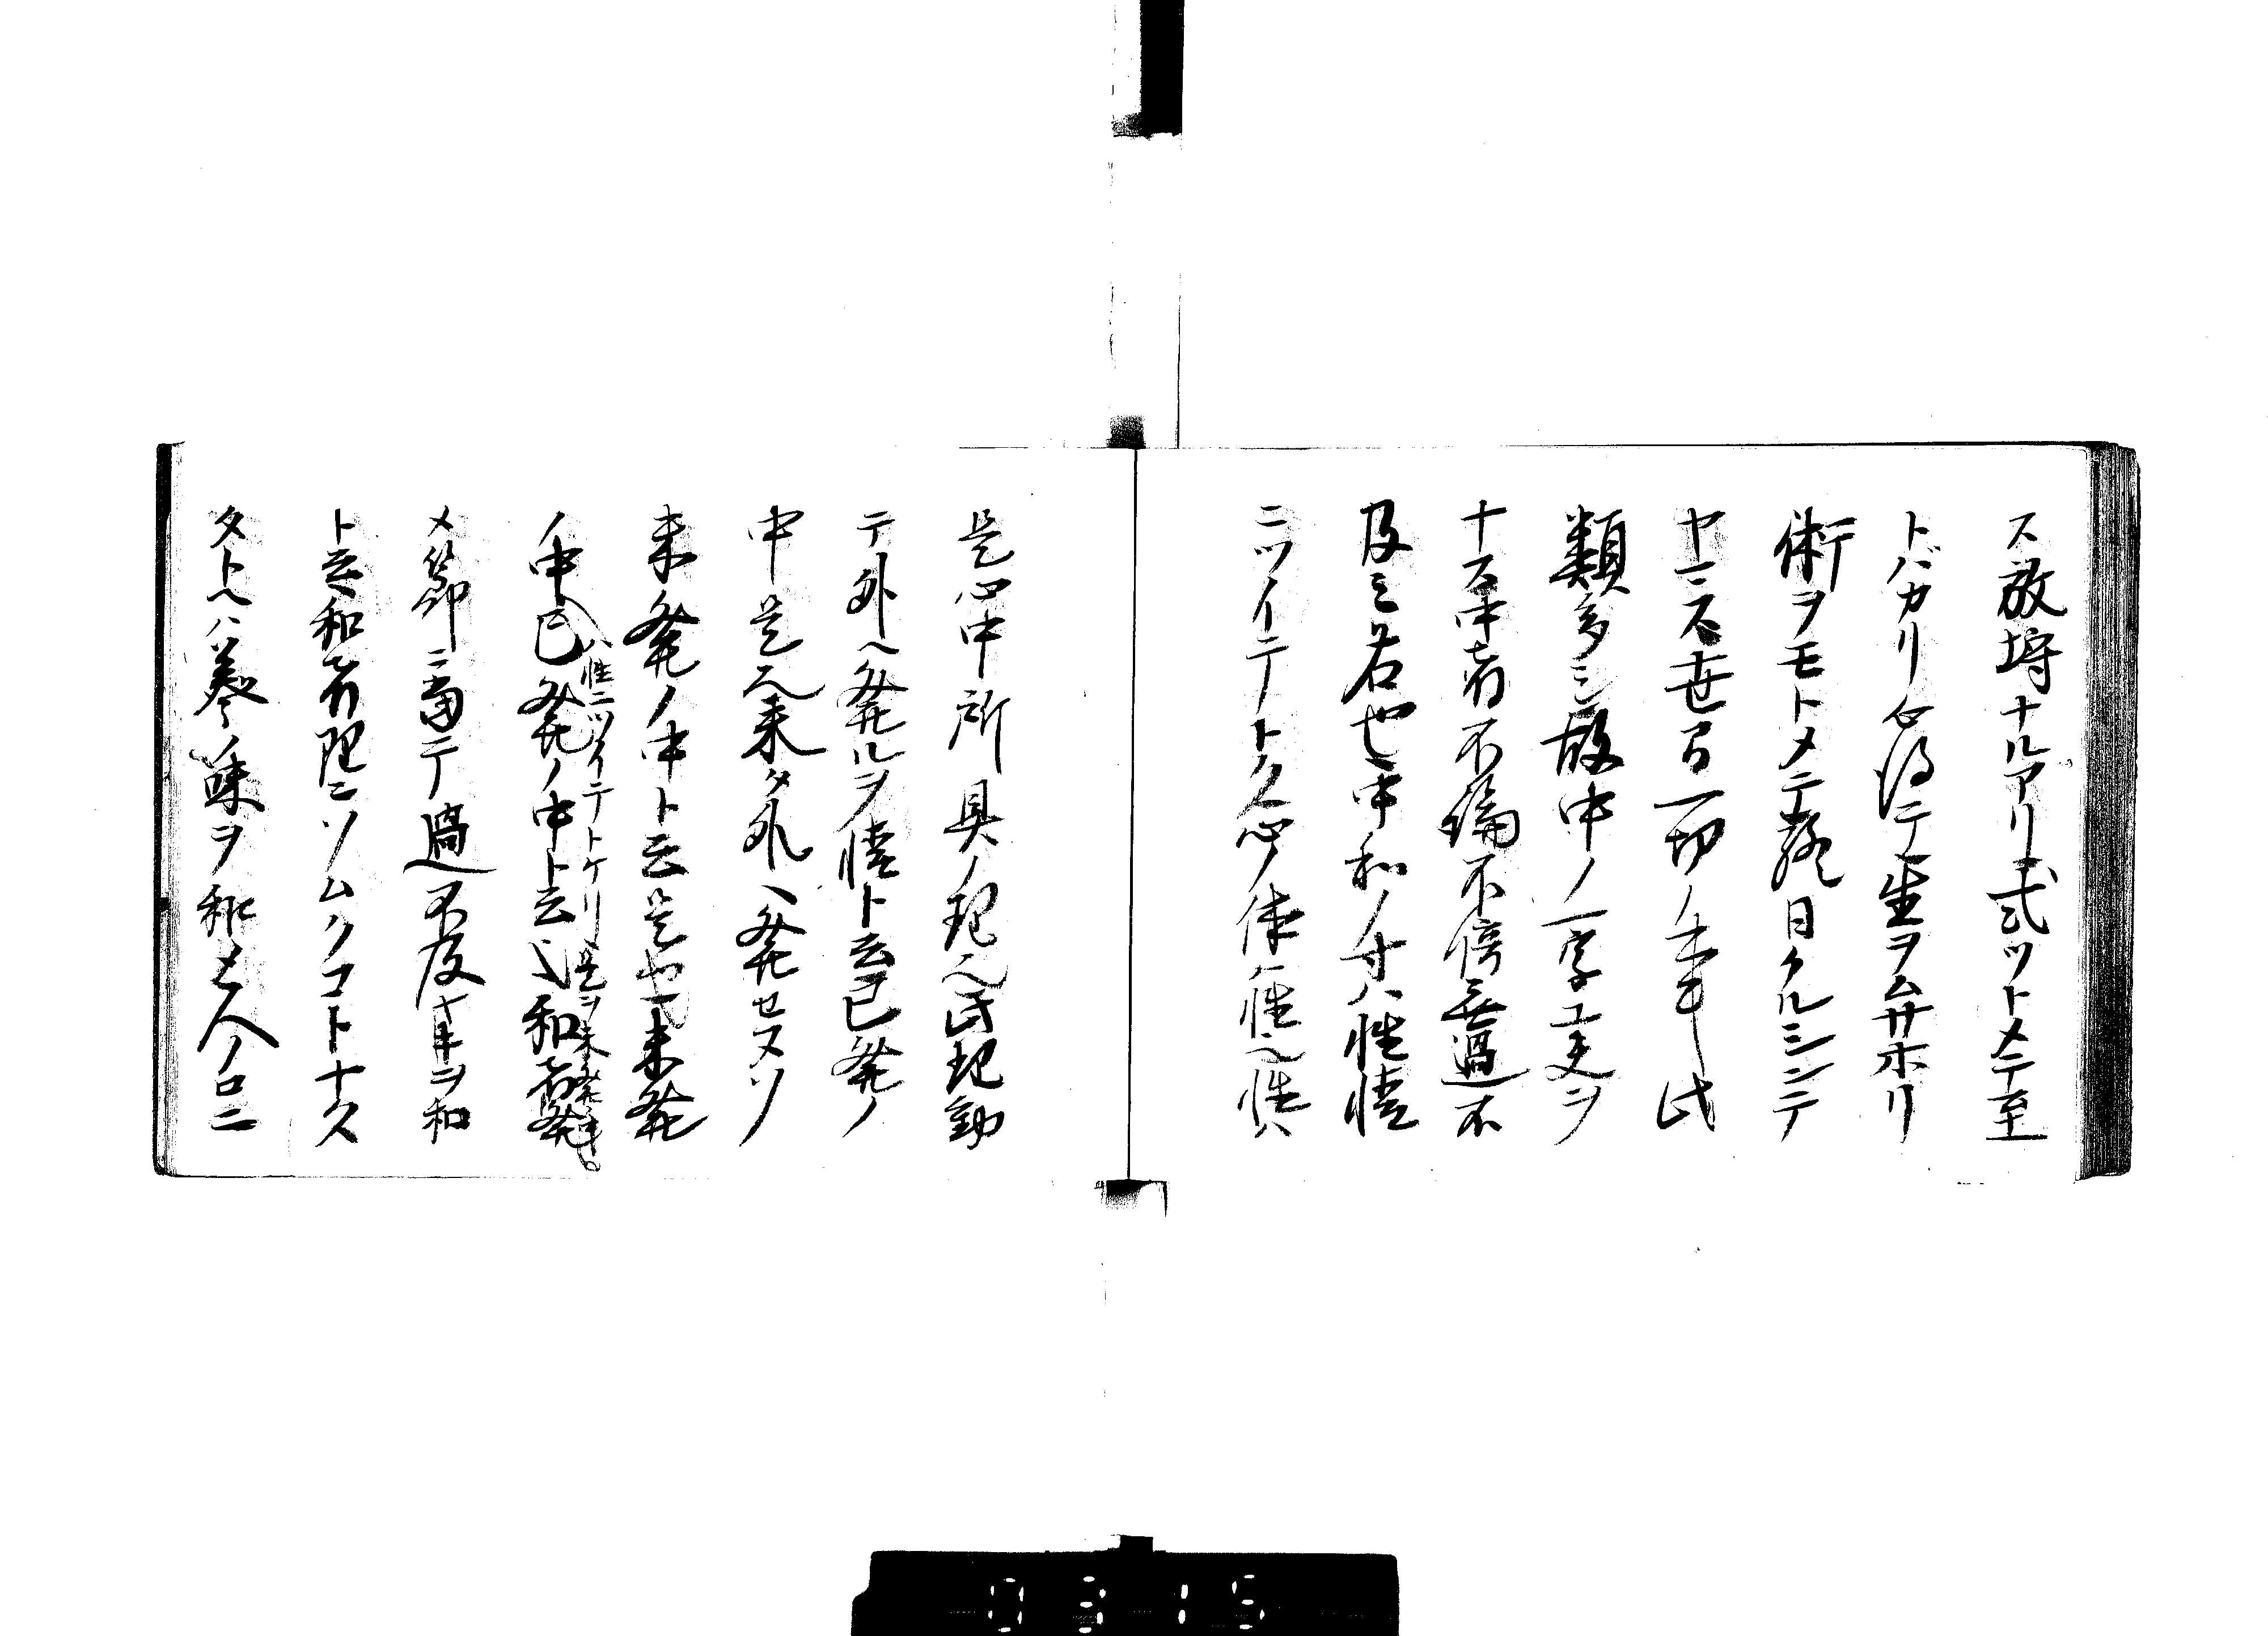 ス放埒ナルアリ或ツトメテ至
トバカリ心得テ蜜ヲムサホリ
術ヲモトメテ終日クルシンテ
ヤマス世間一切ノ事此
類多シ故中ノ一字工夫ヲ
ナス中者不偏不倚無過不
及之名也中和ノ寸ハ性情
ニツイテトク心ノ体ハ性也性ハ
是心中所具ノ理也此理動
テ外ヘ発ルヲ情ト云已発ノ
中是也未タ外ヘ発セヌソ
未発ノ中ト云是也未発
ノ中ハ性ニツイテトケリ是ヲ未発ト云
已発ノ中ト云ハ和者発
メ節ニ当テ過不及ナキヲ和
ト云和者理ニソムクコトナク
タトヘハ羹ノ味ヲ和メ人ノ口ニ
0315